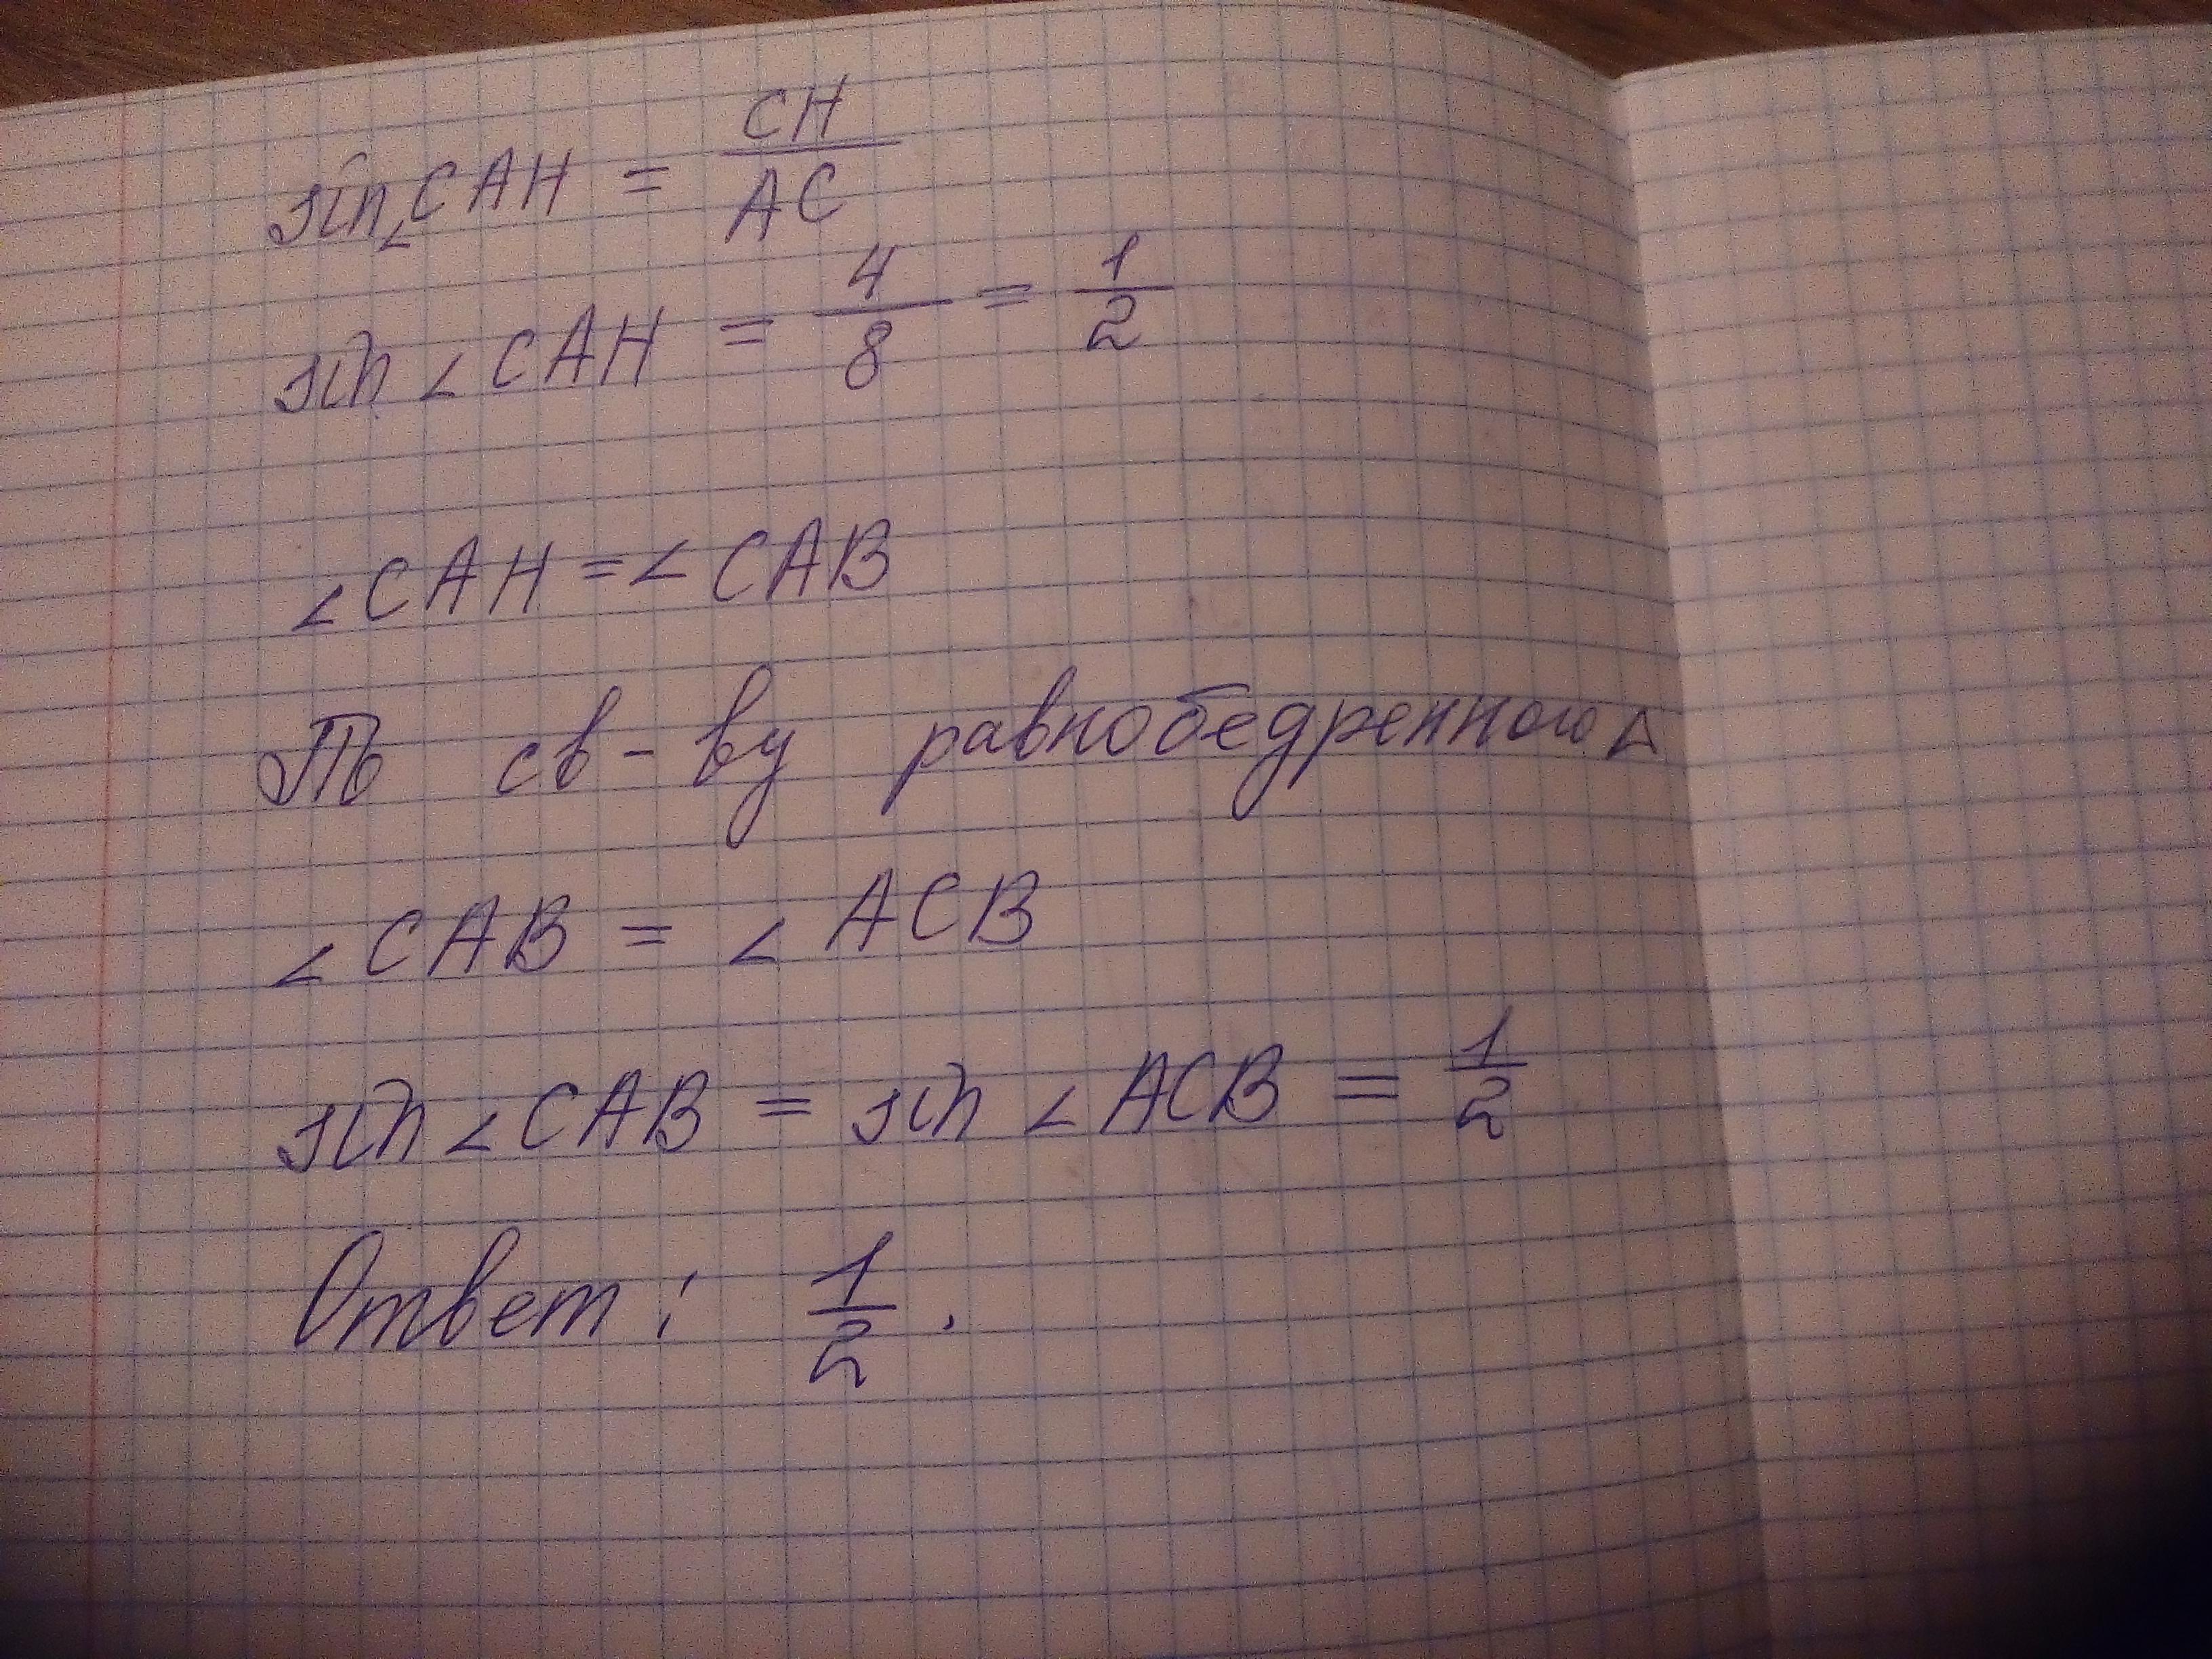 sin∠CAH = CH/AC
sin ∠CAH = 4/8 = 1/2
∠CAH = ∠CAB
По св-ву равнобедренного Δ
∠CAB = ∠ACB
sin ∠CAB = sin ∠ACB = 1/2
Ответ: 1/2.